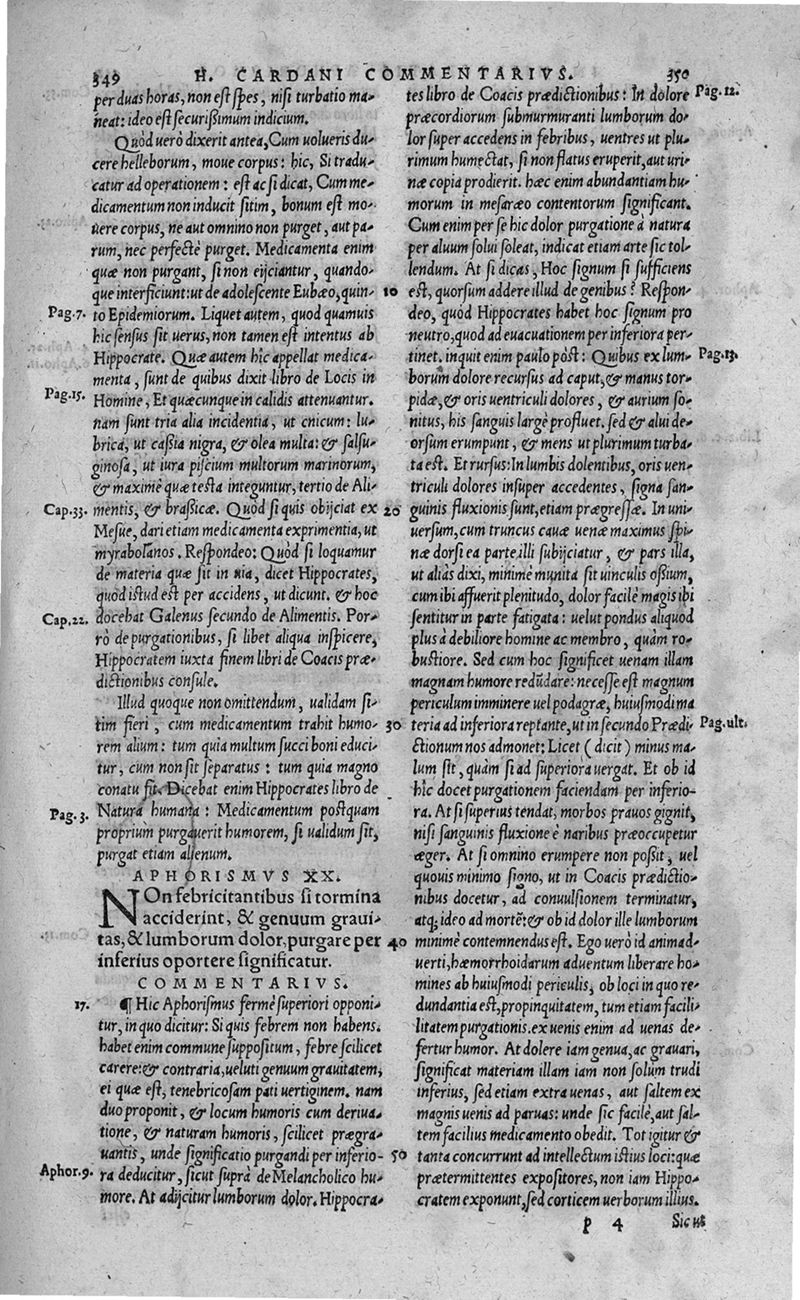 349 H. CARDANI COMMENTARIVS. 350
per duas horas, non est spes, nisi turbatio ma-
neat: ideo est securissimum indicium.
Quòd uerò dixerit antea, Cum uolueris du-
cere helleborum, moue corpus: hic, Si tradu-
catur ad operationem: est ac si dicat, Cum me-
dicamentum non inducit sitim, bonum est mo-
uere corpus, ne aut omnino non purget, aut pa-
rum, nec perfectè purget. Medicamenta enim
quæ non purgant, si non eijciantur, quando-
que interficiunt: ut de adolescente Eubæo, quin-
Pag.7. to Epidemiorum. Liquet autem, quod quamuis
hic sensus sit uerus, non tamen est intentus ab
Hippocrate. Quæ autem hic appellat medica-
menta, sunt de quibus dixit libro de Locis in
Pag.15. Homine, Et quæcunque in calidis attenuantur.
nam sunt tria alia incidentia, ut cnicum: lu-
brica, ut cassia nigra, & olea multa: & salsu-
ginosa, ut iura piscium multorum marinorum,
& maximè quæ testa integuntur, tertio de Ali-
Cap.33. mentis, & brassicæ. Quòd si quis obijciat ex
Mesue, dari etiam medicamenta exprimentia, ut
myrabolanos. Respondeo: Quòd si loquamur
de materia quæ sit in uia, dicet Hippocrates,
quòd istud est per accidens, ut dicunt. & hoc
Cap.22. docebat Galenus secundo de Alimentis. Por-
rò de purgationibus, si libet aliqua inspicere,
Hippocratem iuxta finem libri de Coacis præ-
dictionibus consule.
Illud quoque non omittendum, ualidam si-
tim fieri, cum medicamentum trahit humo-
rem alium: tum quia multum succi boni educi-
tur, cum non sit separatus: tum quia magno
conatu fit. Dicebat enim Hippocrates libro de
Pag.3. Natura humana: Medicamentum postquam
proprium purgauerit humorem, si ualidum sit,
purgat etiam alienum.
APHORISMVS XX.
NOn febricitantibus si tormina
acciderint, & genuum graui-
tas, & lumborum dolor, purgare per
inferius oportere significatur.
COMMENTARIVS.
17. ¶ Hic Aphorismus fermè superiori opponi-
tur, in quo dicitur: Si quis febrem non habens.
habet enim commune suppositum, febre scilicet
carere: & contraria, ueluti genuum grauitatem,
ei quæ est, tenebricosam pati uertiginem. nam
duo proponit, & locum humoris cum deriua-
tione, & naturam humoris, scilicet prægra-
uantis, unde significatio purgandi per inferio-
Aphor.9. ra deducitur, sicut suprà de Melancholico hu-
more. At adijcitur lumborum dolor. Hippocra-
tes libro de Coacis prædictionibus: In dolore Pag.12.
præcordiorum submurmuranti lumborum do-
lor super accedens in febribus, uentres ut plu-
rimum humectat, si non flatus eruperit, aut uri-
næ copia prodierit. hæc enim abundantiam hu-
morum in mesaræo contentorum significant.
Cum enim per se hic dolor purgatione à natura
per aluum solui soleat, indicat etiam arte sic tol-
lendum. At si dicas, Hoc signum si sufficiens
10 est, quorsum addere illud de genibus? Respon-
deo, quòd Hippocrates habet hoc signum pro
neutro, quod ad euacuationem per inferiora per-
tinet. inquit enim paulo pòst: Quibus ex lum- Pag.13.
borum dolore recursus ad caput, & manus tor-
pidæ, & oris uentriculi dolores, & aurium so-
nitus, his sanguis largè profluet. sed & alui de-
orsum erumpunt, & mens ut plurimum turba-
ta est. Et rursus: In lumbis dolentibus, oris uen-
triculi dolores insuper accedentes, signa san-
20 guinis fluxionis sunt, etiam prægressæ. In uni-
uersum, cum truncus cauæ uenæ maximus spi-
næ dorsi ea parte illi subijciatur, & pars illa,
ut aliàs dixi, minimè munita sit uinculis ossium,
cum ibi affuerit plenitudo, dolor facilè magis ibi
sentitur in parte fatigata: uelut pondus aliquod
plus à debiliore homine ac membro, quàm ro-
bustiore. Sed cum hoc significet uenam illam
magnam humore redũdare: necesse est magnum
periculum imminere uel podagræ, huiusmodi ma
30 teria ad inferiora reptante, ut in secundo Prædi- Pag.ult.
ctionum nos admonet: Licet (dicit) minus ma-
lum sit, quàm si ad superiora uergat. Et ob id
hic docet purgationem faciendam per inferio-
ra. At si superius tendat, morbos prauos gignit,
nisi sanguinis fluxione è naribus præoccupetur
æger. At si omnino erumpere non possit, uel
quouis minimo signo, ut in Coacis prædictio-
nibus docetur, ad conuulsionem terminatur,
atq; ideo ad mortẽ: & ob id dolor ille lumborum
40 minimè contemnendus est. Ego uerò id animad-
uerti, hæmorrhoidarum aduentum liberare ho-
mines ab huiusmodi periculis, ob loci in quo re-
dundantia est, propinquitatem, tum etiam facili-
litatem purgationis. ex uenis enim ad uenas de-
fertur humor. At dolere iam genua, ac grauari,
significat materiam illam iam non solum trudi
inferius, sed etiam extra uenas, aut saltem ex
magnis uenis ad paruas: unde sic facilè, aut sal-
tem facilius medicamento obedit. Tot igitur &
50 tanta concurrunt ad intellectum istius loci: quæ
prætermittentes expositores, non iam Hippo-
cratem exponunt, sed corticem uerborum illius.
p 4 Sicut